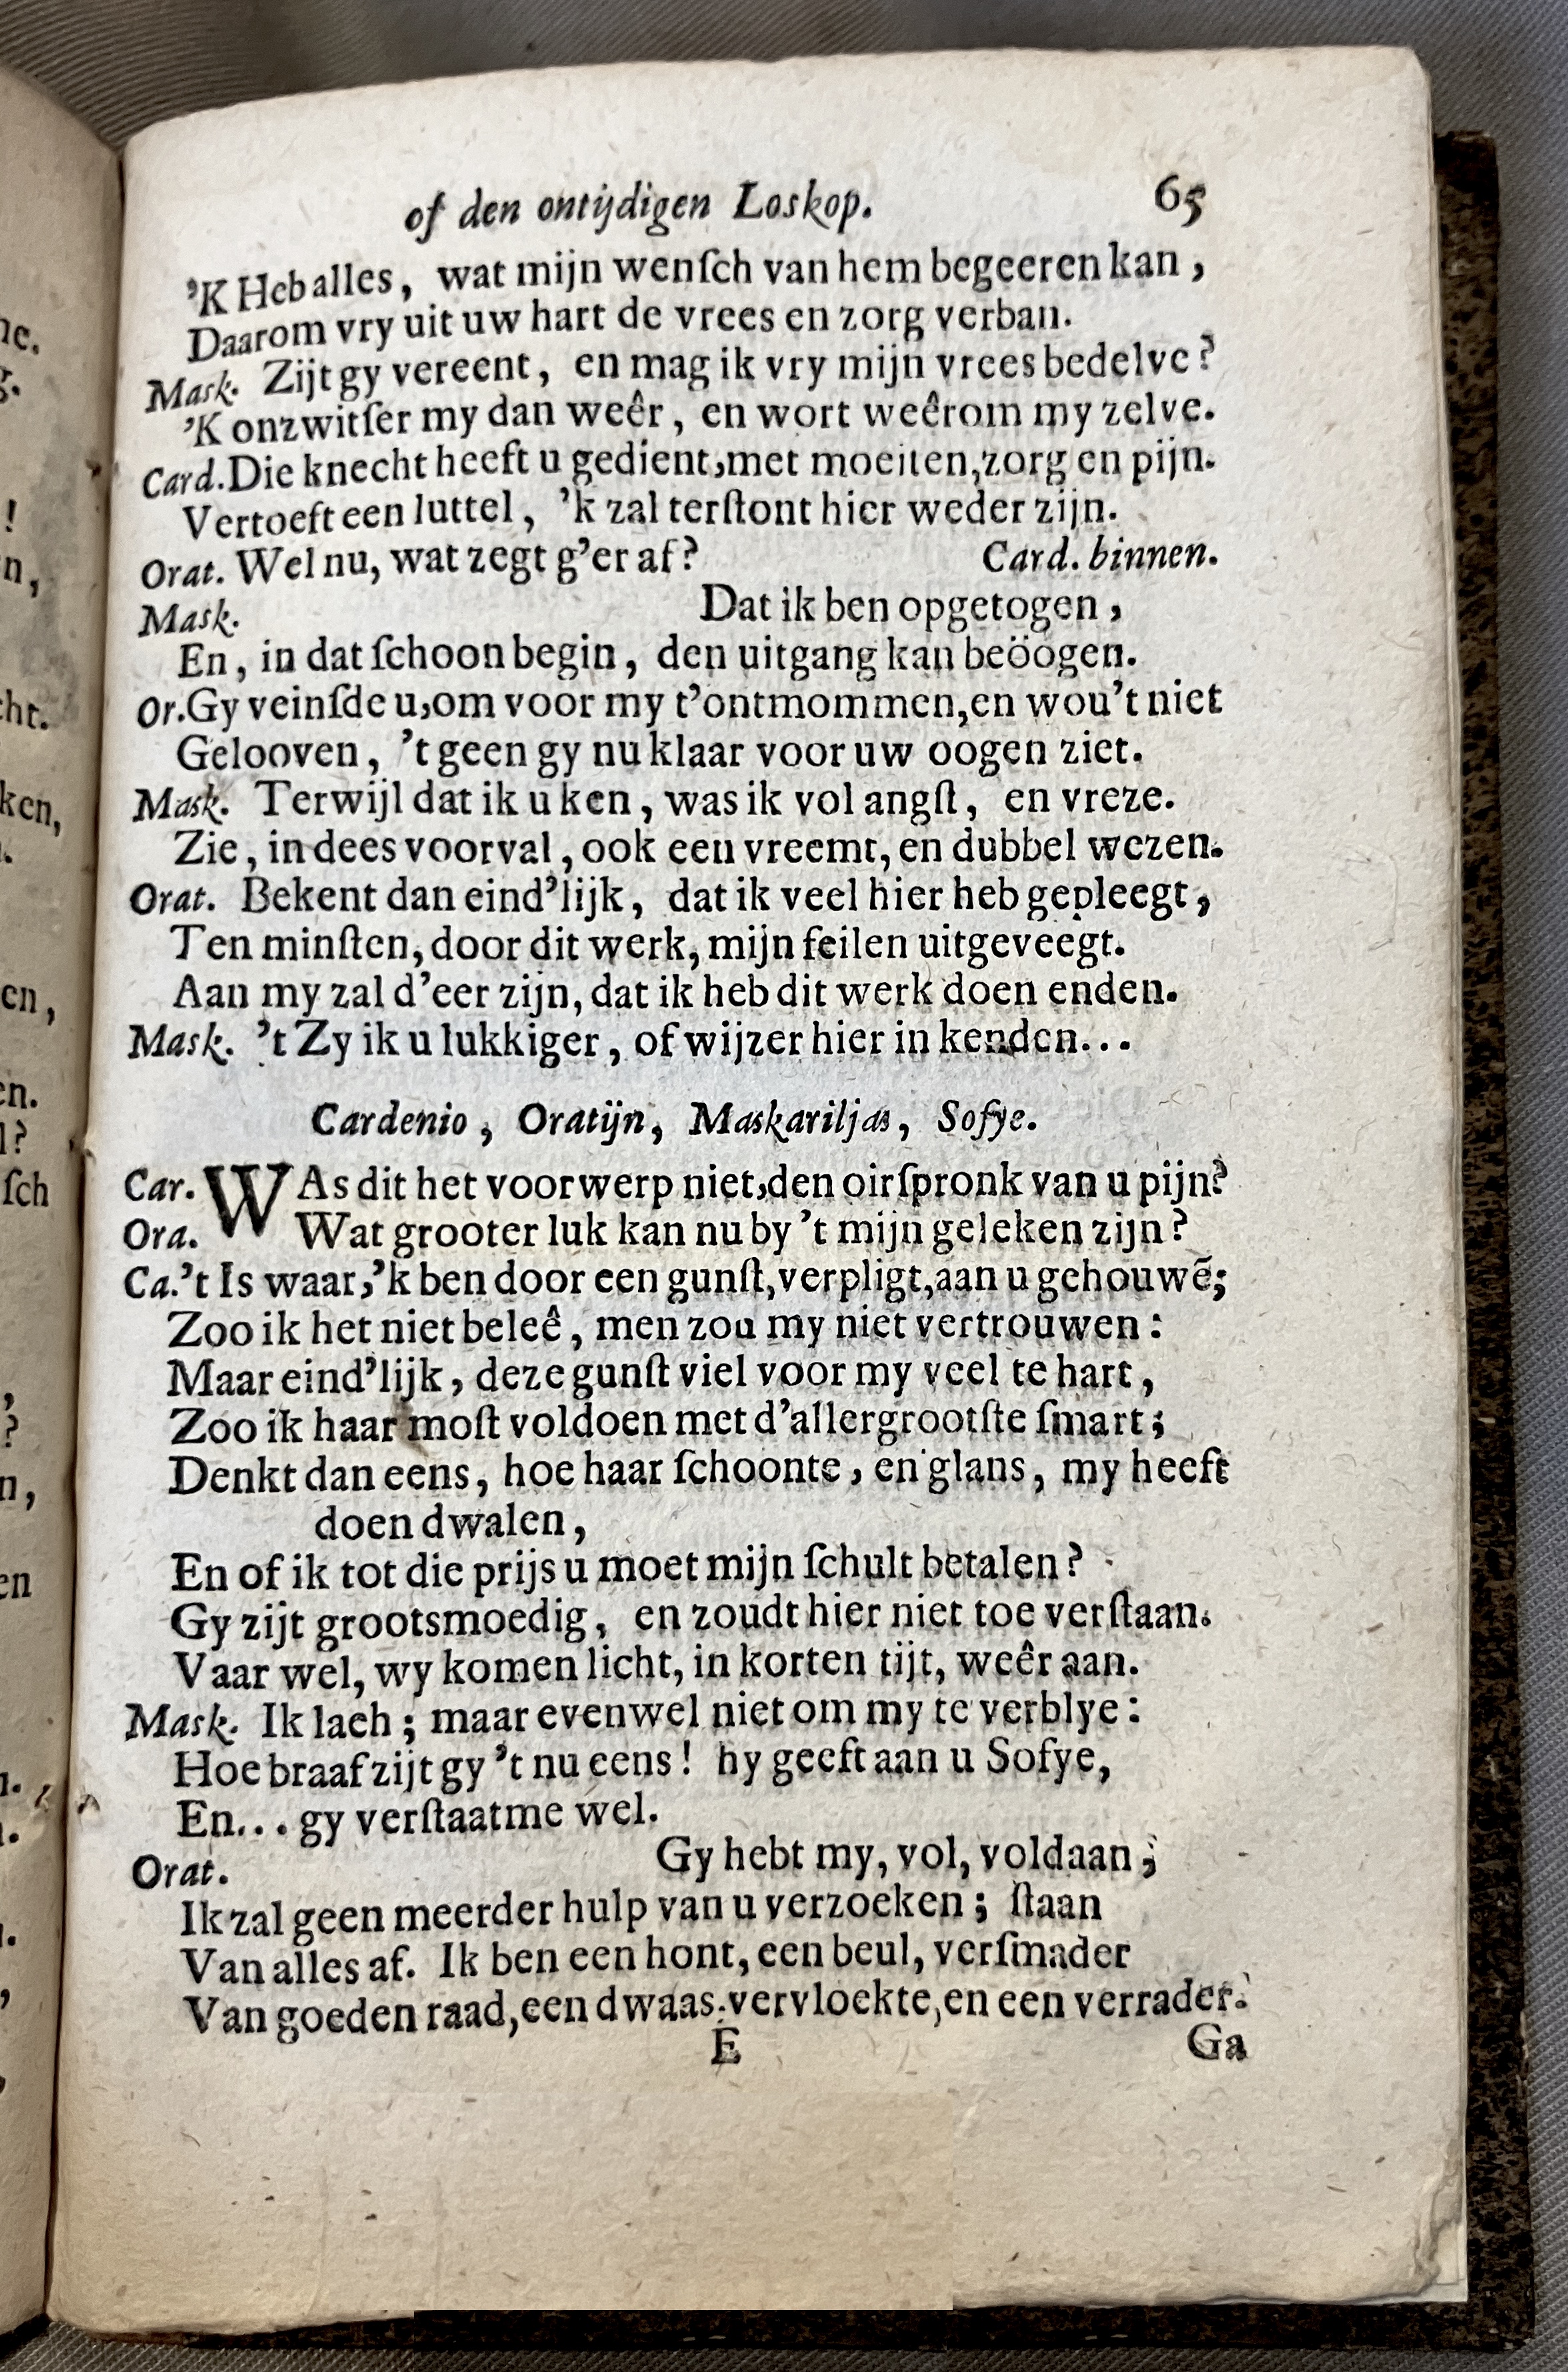 of den ontijdigen Loskop. 65
'K Heb alles, wat mijn wenſch van hem begeeren kan,
Daarom vry uit uw hart de vrees en zorg verban.
Mask. Zijt gy vereent, en mag ik vry mijn vrees bedelve?
'K onzwitſer my dan weêr, en wort weêrom my zelve.
Card. Die knecht heeft u gedient, met moeiten, zorg en pijn.
Vertoeft een luttel, 'k zal terſtont hier weder zijn.
Orat. Wel nu, wat zegt g'er af? Card. binnen.
Mask. Dat ik ben opgetogen,
En, in dat ſchoon begin, den uitgang kan beöogen.
Or. Gy veinſde u, om voor my t'ontmommen, en wou't niet
Gelooven, 't geen gy nu klaar voor uw oogen ziet.
Mask. Terwijl dat ik u ken, was ik vol angſt, en vreze.
Zie, in dees voorval, ook een vreemt, en dubbel wezen.
Orat. Bekent dan eind'lijk, dat ik veel hier heb gepleegt,
Ten minſten, door dit werk, mijn feilen uitgeveegt.
Aan my zal d'eer zijn, dat ik heb dit werk doen enden.
Mask. 't Zy ik u lukkiger, of wijzer hier in kenden...
Cardenio, Oratijn, Maskariljas, Sofye.
Car. WAs dit het voorwerp niet, den oirſpronk van u pijn?
Ora. Wat grooter luk kan nu by 't mijn geleken zijn?
Ca. 't Is waar, 'k ben door een gunſt, verpligt, aan u gehouwẽ;
Zoo ik het niet beleê, men zou my niet vertrouwen:
Maar eind'lijk, deze gunſt viel voor my veel te hart,
Zoo ik haar moſt voldoen met d'allergrootſte ſmart;
Denkt dan eens, hoe haar ſchoonte, en glans, my heeft
doen dwalen,
En of ik tot die prijs u moet mijn ſchult betalen?
Gy zijt grootsmoedig, en zoudt hier niet toe verſtaan.
Vaar wel, wy komen licht, in korten tijt, weêr aan.
Mask. Ik lach; maar evenwel niet om my te verblye:
Hoe braaf zijt gy 't nu eens! hy geeft aan u Sofye,
En... gy verſtaatme wel.
Orat. Gy hebt my, vol, voldaan;
Ik zal geen meerder hulp van u verzoeken; ſtaan
Van alles af. Ik ben een hont, een beul, verſmader
Van goeden raad, een dwaas. vervloekte, en een verrader.
E Ga